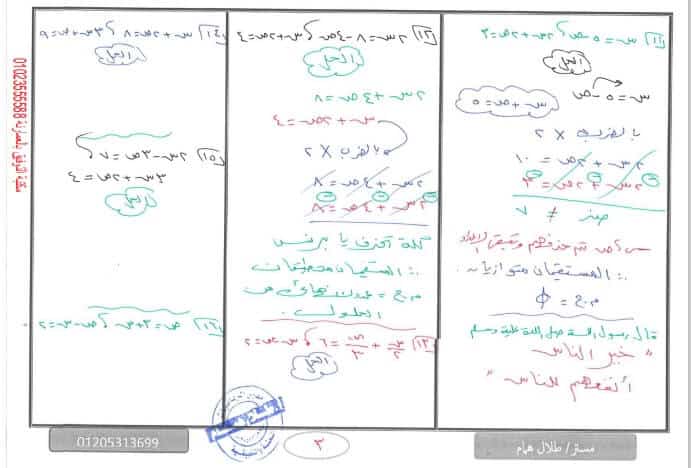 [١١] س = ٥ - ص ، ٢س + ٢ص = ٣
الحل
س = ٥ - ص
س + ص = ٥
بالضرب × ٢
٢س + ٢ص = ١٠
٢س + ٢ص = ٣
صفر ≠ ٧
س، ص تم حذفهم وتبقى الأعداد
∴ المستقيمان متوازيان
م.ح = ϕ
قال رسول الله صلى الله عليه وسلم
" خير الناس
أنفعهم للناس "
[١٢] ٢س = ٨ - ٤ص ، س + ٢ص = ٤
الحل
٢س + ٤ص = ٨
س + ٢ص = ٤
بالضرب × ٢
٢س + ٤ص = ٨
٢س + ٤ص = ٨
كله اتحذف يا برنس
∴ المستقيمان منطبقان
م.ح = عدد لا نهائي من
الحلول
[١٣] س/٢ + ص/٣ = ٦ ، س - ص = ٢
الحل
[١٤] س + ٢ص = ٨ ، ٣س + ص = ٩
الحل
[١٥] ٢س - ٣ص = ٧ ،
٣س + ٢ص = ٤
الحل
[١٦] ص = ٢ + ٣س ، ص - س = ٢
01023555588
مستر/ طلال همام
٣
01205313699